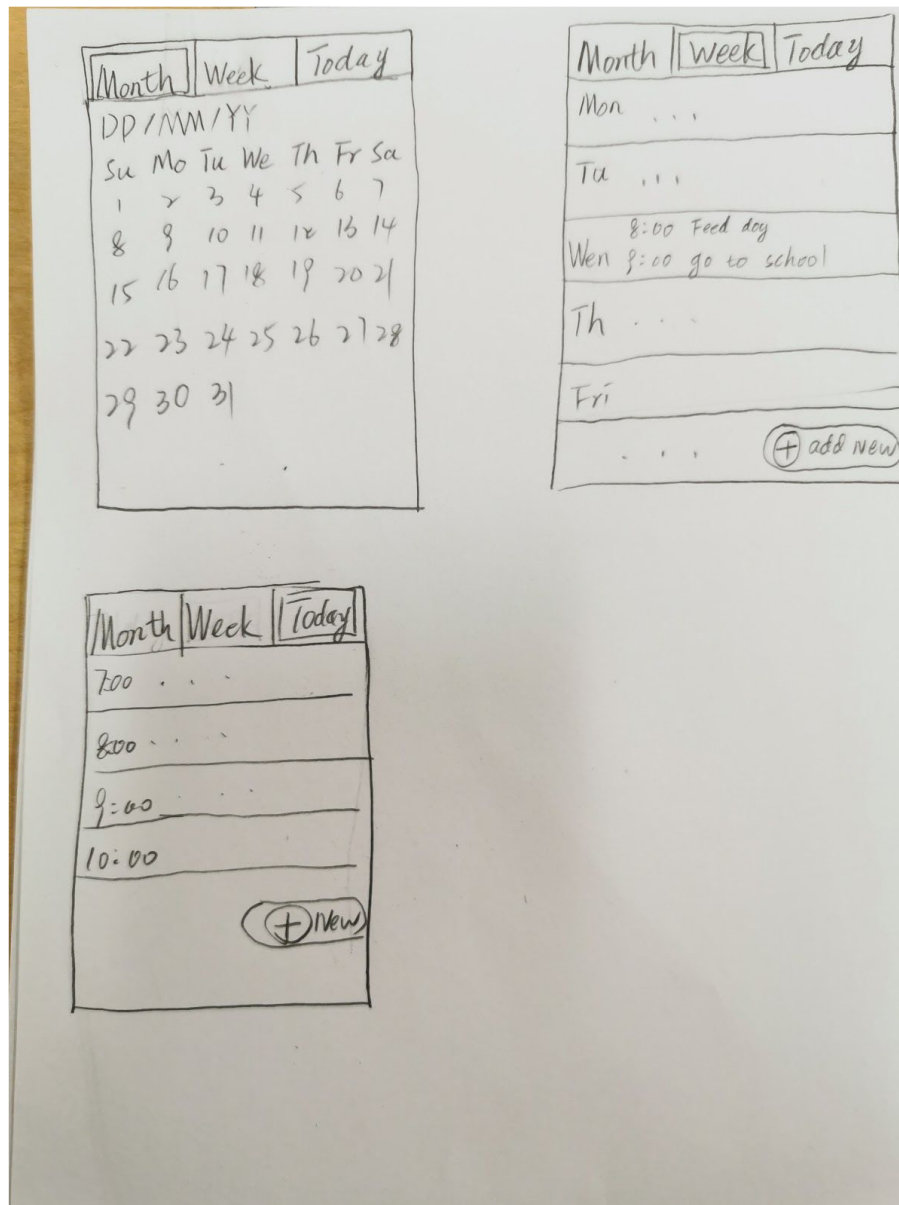 Month Week Today
DD/MM/YY
Su Mo Tu We Th Fr Sa
1 2 3 4 5 6 7
8 9 10 11 12 13 14
15 16 17 18 19 20 21
22 23 24 25 26 27 28
29 30 31
Month Week Today
Mon ...
Tu ...
8:00 Feed dog
Wen 9:00 go to school
Th ...
Fri
... + add New
Month Week Today
7:00 ...
8:00 ...
9:00 ...
10:00
+ New